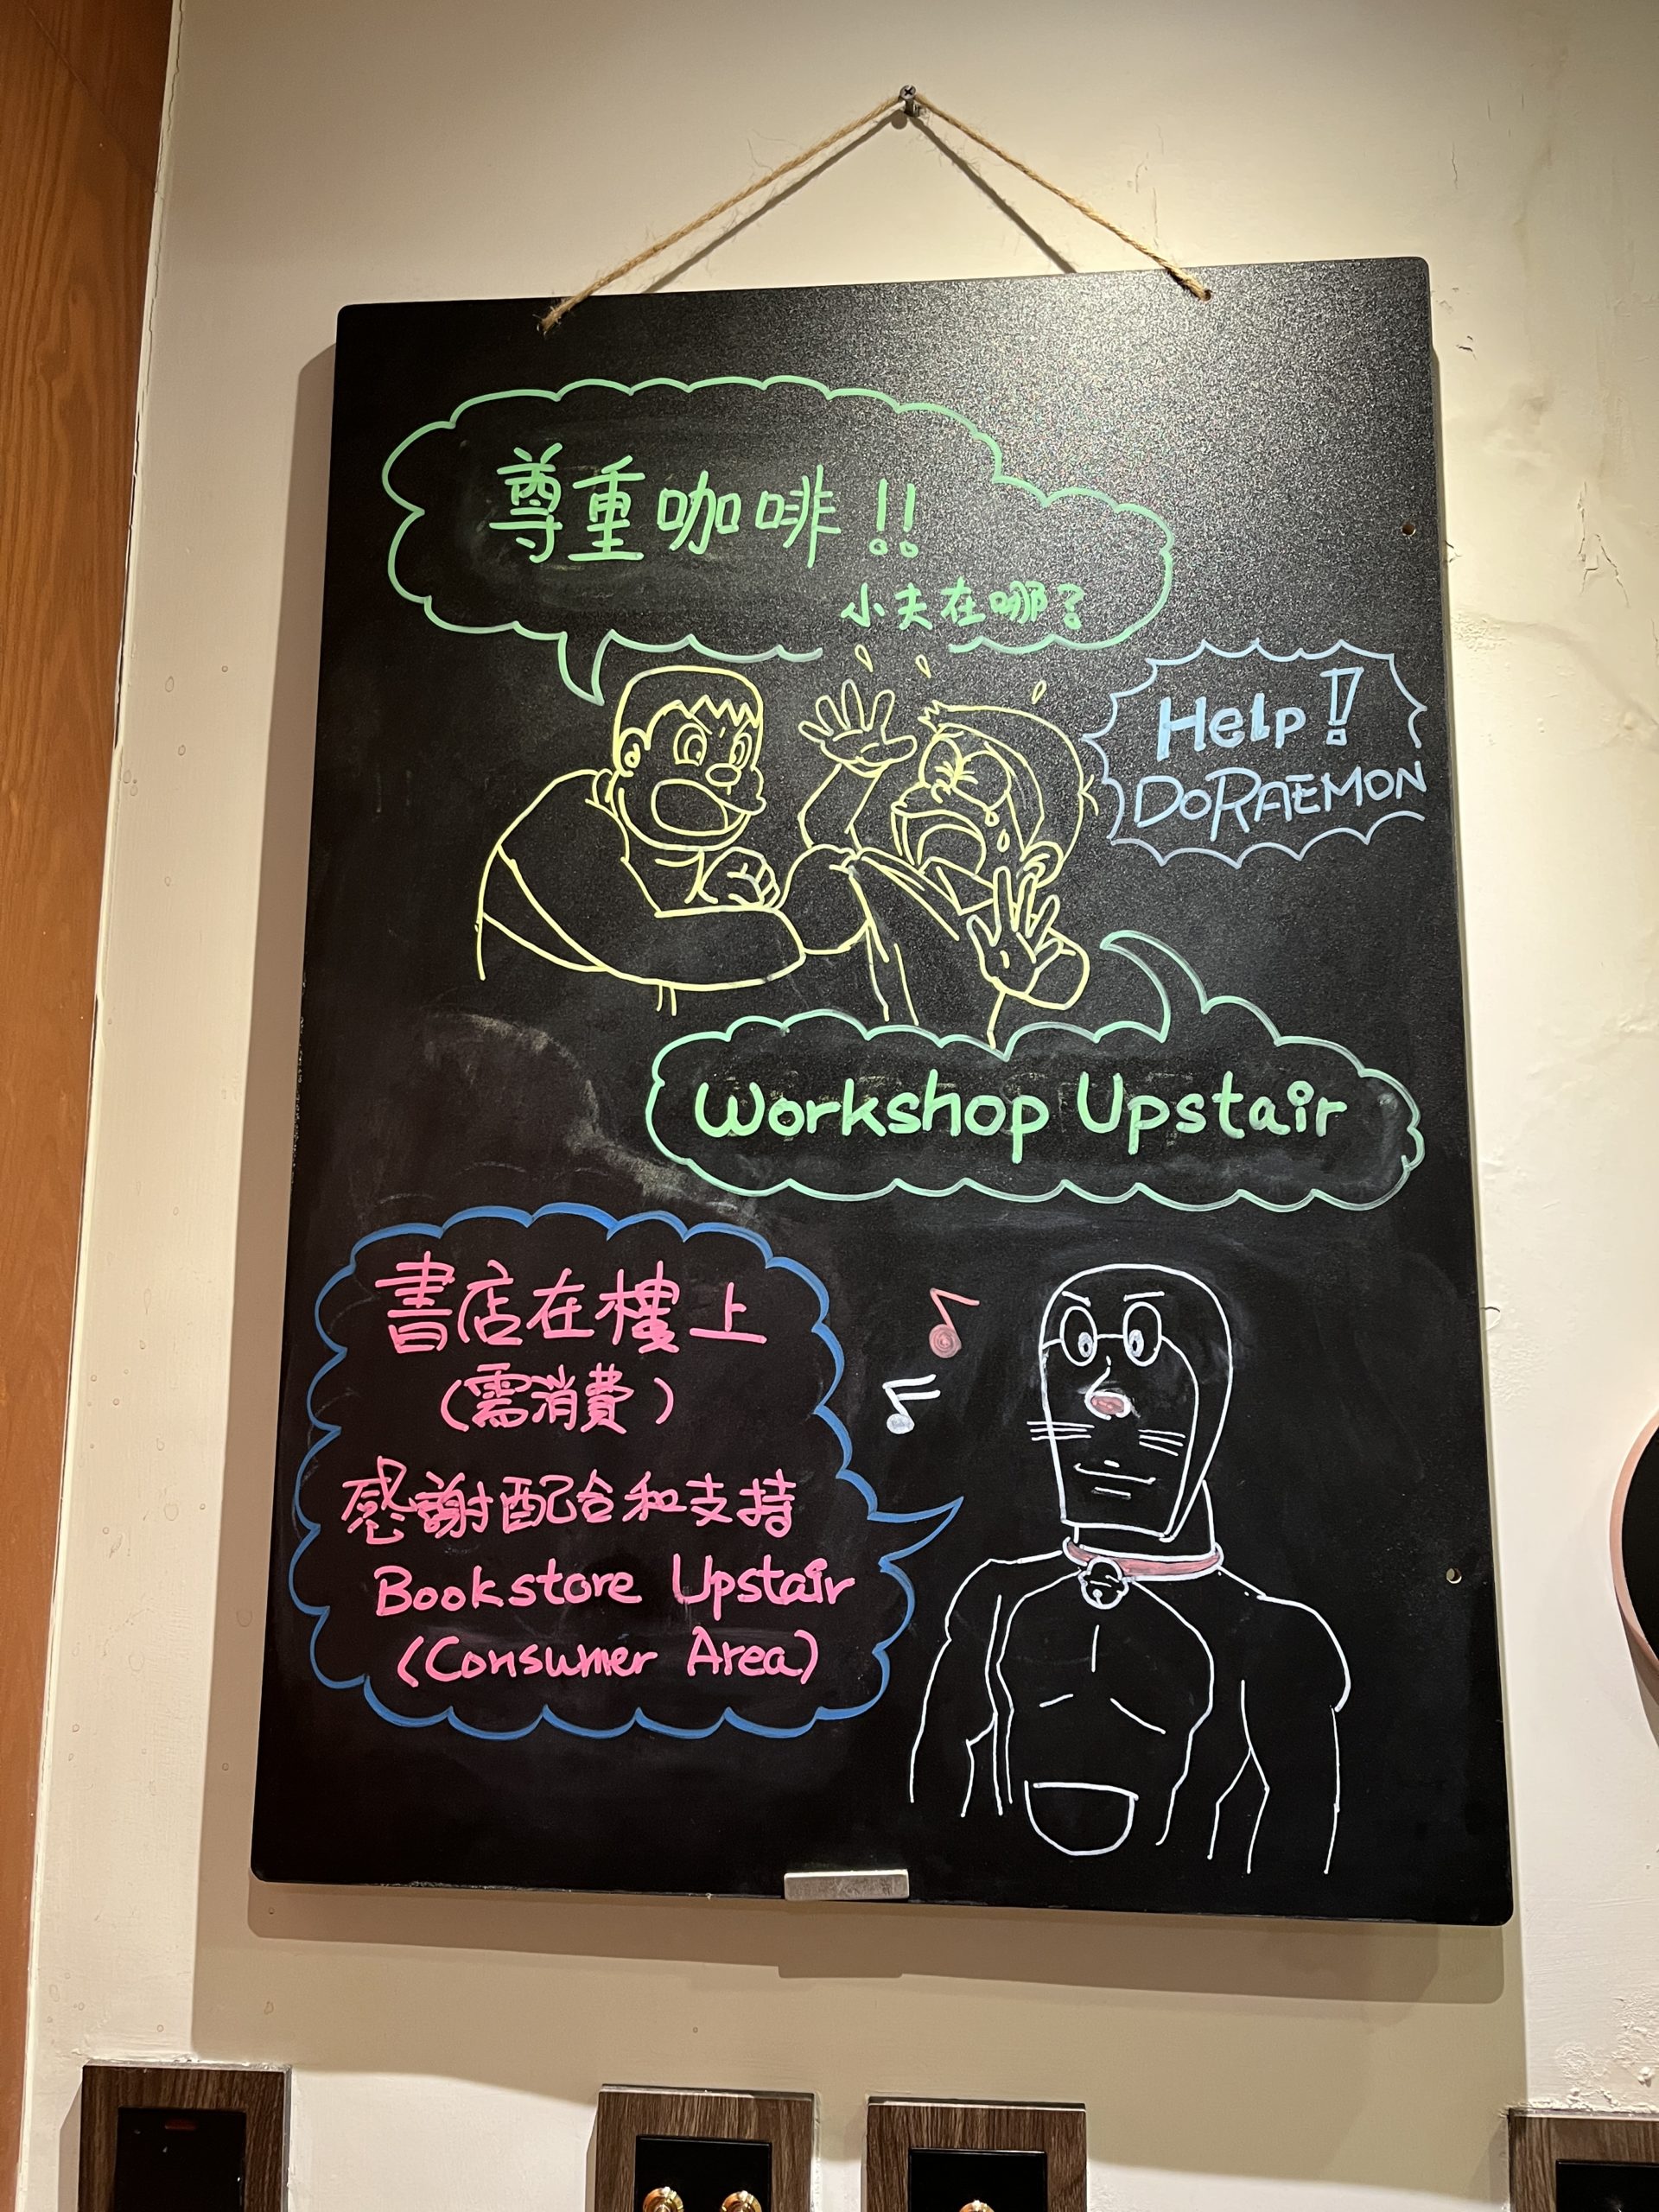 尊重咖啡!!
小夫在哪?
Help!
DORAEMON
Workshop Upstair
書店在樓上
(需消費)
感謝配合和支持
Bookstore Upstair
(Consumer Area)